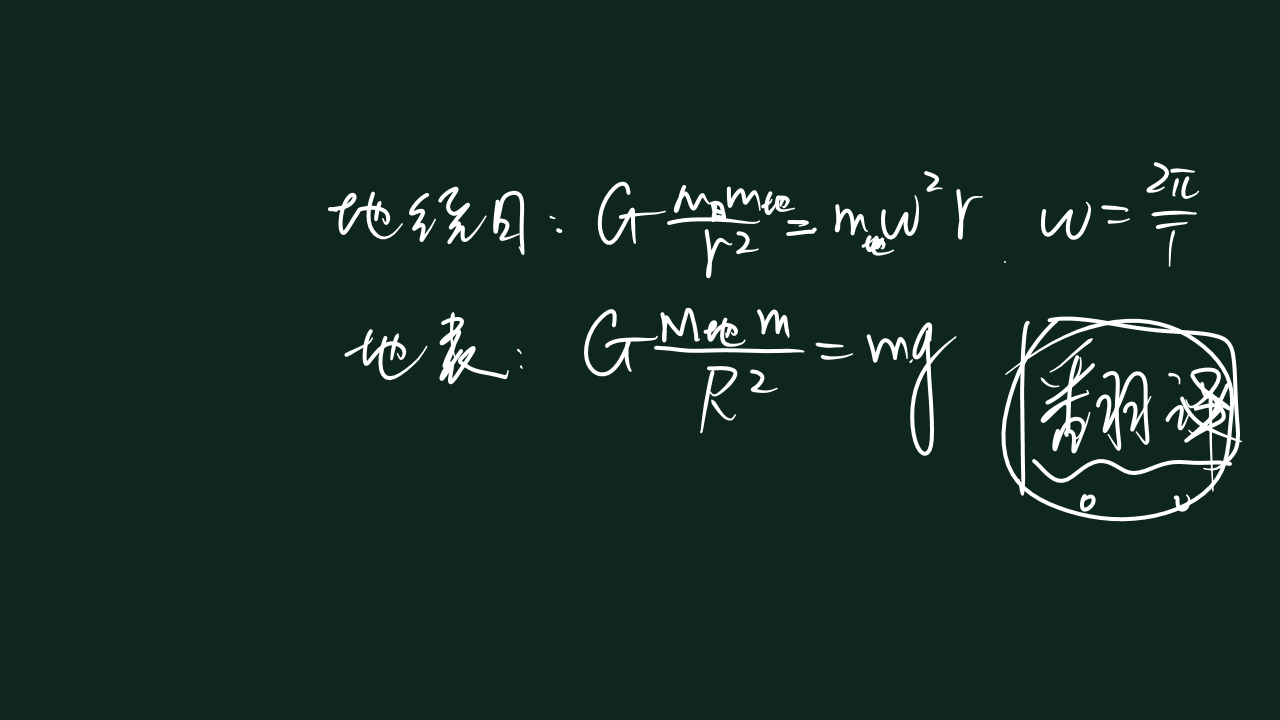 地绕日: G M日m地/r² = m地ω²r ω = 2π/T
地表: G M地m/R² = mg
翻译